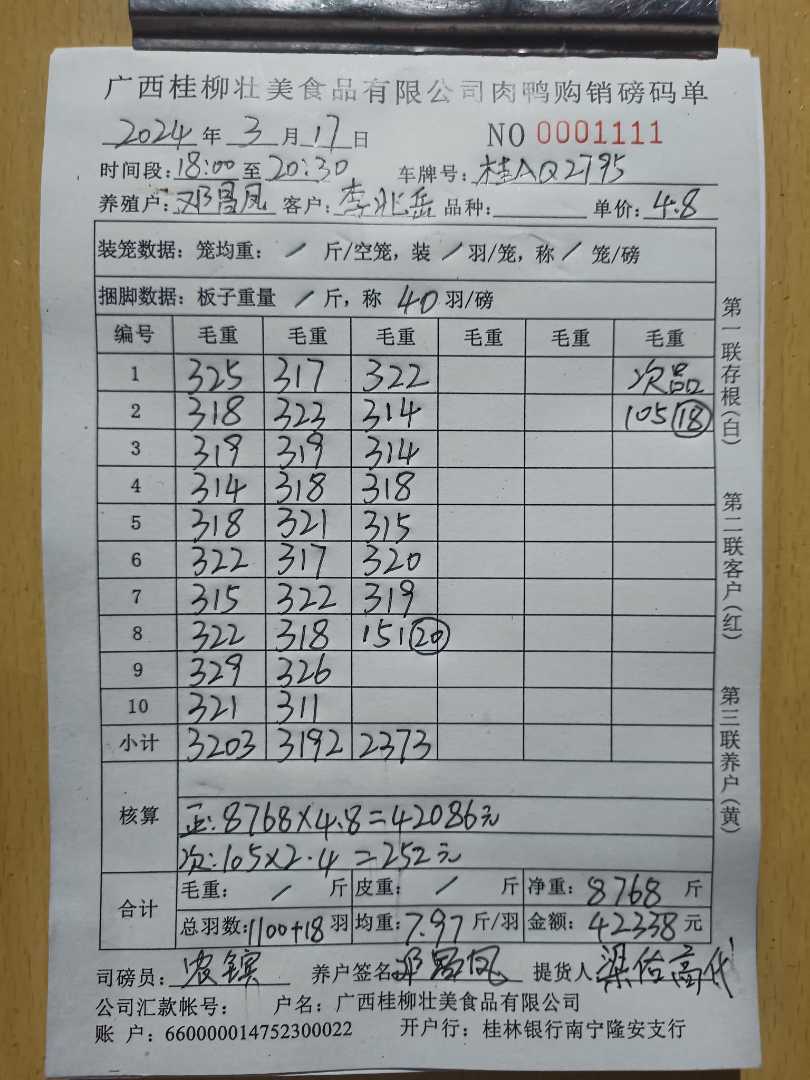 广西桂柳壮美食品有限公司肉鸭购销磅码单
2024年3月17日 NO 0001111
时间段:18:00至20:30 车牌号:桂AQ2795
养殖户:邓昌凤 客户:李兆岳 品种: 单价:4.8
装笼数据:笼均重: / 斤/空笼,装 / 羽/笼,称 / 笼/磅
捆脚数据:板子重量 / 斤,称 40 羽/磅
编号 毛重 毛重 毛重 毛重 毛重 毛重
1 325 317 322 次品
2 318 323 314 105 18
3 319 319 314
4 314 318 318
5 318 321 315
6 322 317 320
7 315 322 319
8 322 318 151 20
9 329 326
10 321 311
小计 3203 3192 2373
核算
正:8768×4.8=42086元
次:105×2.4=252元
合计
毛重: / 斤 皮重: / 斤 净重:8768斤
总羽数:1100+18羽 均重:7.97斤/羽 金额:42338元
司磅员: 养户签名:邓昌凤 提货人:梁佑高代
公司汇款帐号: 户名:广西桂柳壮美食品有限公司
账 户:660000014752300022 开户行:桂林银行南宁隆安支行
第一联存根(白)
第二联客户(红)
第三联养户(黄)